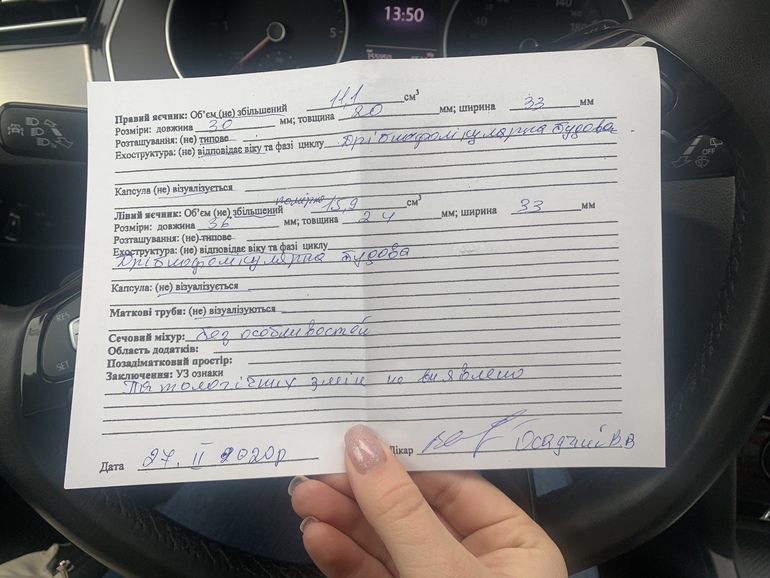 13:50
Правий яєчник: Об'єм (не) збільшений 11,1 см³
Розміри: довжина 30 мм; товщина 20 мм; ширина 33 мм
Розташування: (не) типове
Ехоструктура: (не) відповідає віку та фазі циклу Дрібнофолікулярна будова.
Капсула (не) візуалізується
помірно
Лівий яєчник: Об'єм (не) збільшений 15,9 см³
Розміри: довжина 36 мм; товщина 24 мм; ширина 33 мм
Розташування: (не) типове
Ехоструктура: (не) відповідає віку та фазі циклу
Дрібнофолікулярна будова
Капсула: (не) візуалізується
Маткові труби: (не) візуалізуються
Сечовий міхур: без особливостей
Область додатків:
Позадіматковий простір:
Заключення: УЗ ознаки
Патологічних змін не виявлено
Дата 27. II 2020р Лікар Осадчий В В
RES
SET
OFF